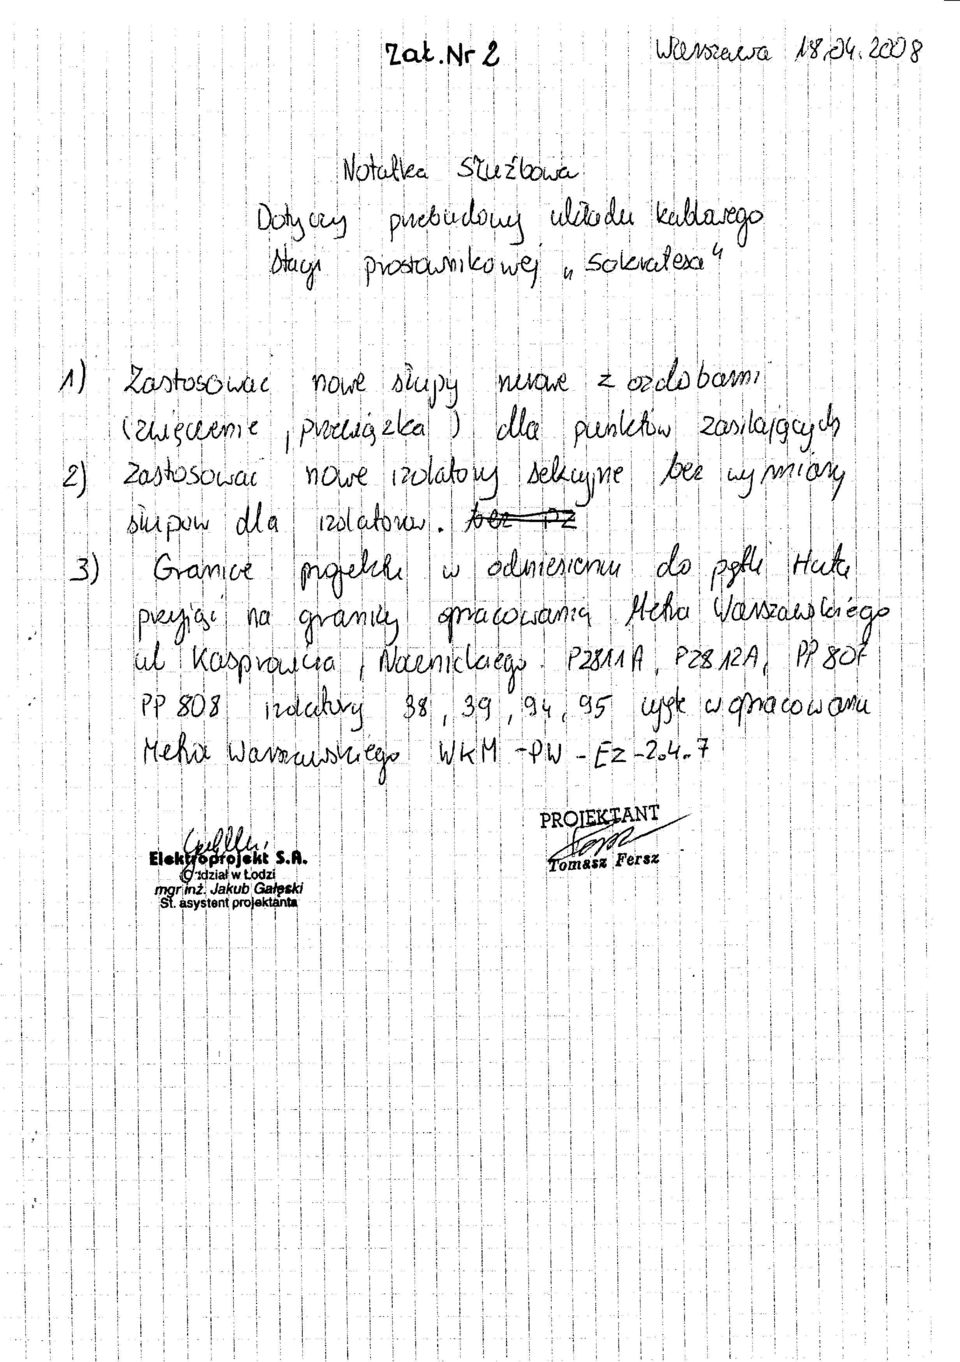 Zał. Nr 2
Warszawa 18.04.2008
Notatka Służbowa
Dotyczy przebudowy układu kablowego
Stacji prostownikowej „Sokratesa"
1) Zastosować nowe słupy nerowe z ozdobami
(zwieńczenie, przewiązka) dla punktów zasilających
2) Zastosować nowe izolatory sekcyjne bez wymiany
słupów dla izolatorów. bez PZ
3) Granice projektu w odniesieniu do pętli Huta
przyjąć na granicy opracowania Metra Warszawskiego
ul Kasprowicza i Nocznickiego. PZ811A, PZ812A, PP807
PP 808 izolatory 38, 39, 94, 95 ujęte w opracowaniu
Metra Warszawskiego WKM-PW-EZ-2.4.7
PROJEKTANT
Tomasz Fersz
Elektroprojekt S.A.
Oddział w Łodzi
mgr inż. Jakub Gałęski
St. asystent projektanta